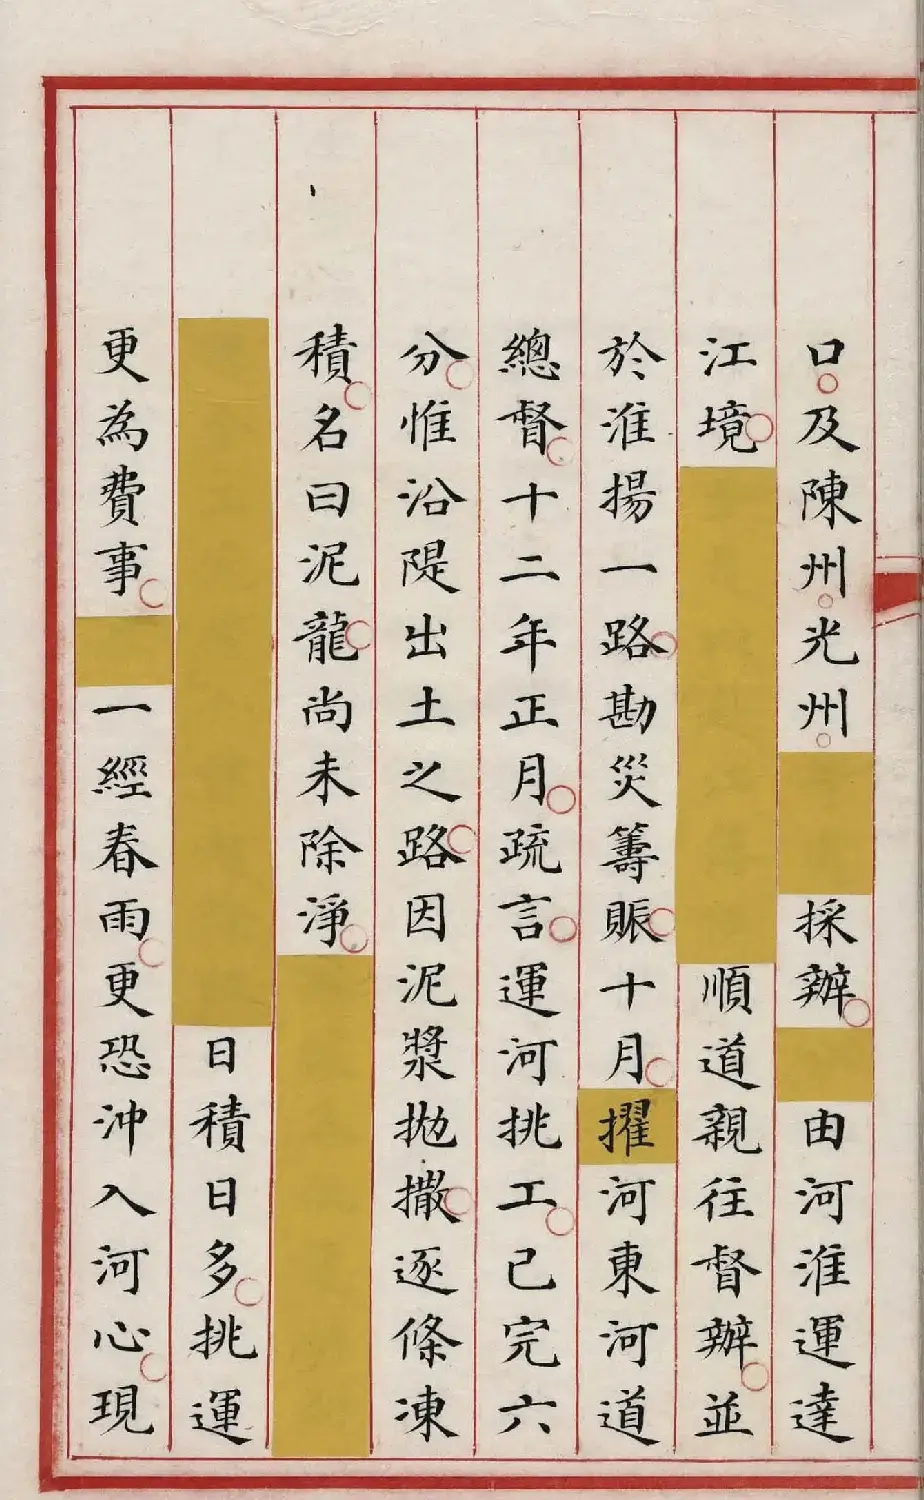 口及陳州光州採辦由河淮運達
江境順道親往督辦並
於淮揚一路勘災籌賑十月擢河東河道
總督十二年正月疏言運河挑工已完六
分惟沿隄出土之路因泥漿拋撒逐條凍
積名曰泥龍尚未除淨
日積日多挑運
更為費事一經春雨更恐沖入河心現